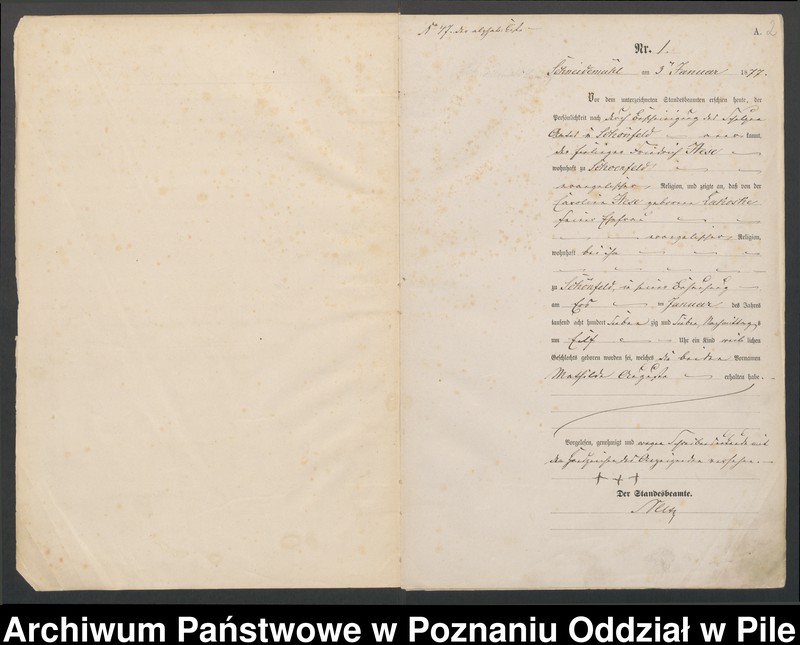 A. 2
Nr. 1.
Schneidemühl am 3ten Januar 1877.
Vor dem unterzeichneten Standesbeamten erschien heute, der
Persönlichkeit nach durch Bescheinigung des Schulzen
zu Schönfeld kannt,
der Friedrich Hese
wohnhaft zu Schoenfeld
evangelischer Religion, und zeigte an, daß von der
Caroline Hese geborene
seiner Ehefrau
evangelischer Religion,
wohnhaft bei ihm
zu Schönfeld in seiner Behausung
am Januar des Jahres
tausend acht hundert sieben zig und sieben, Nachmittags
um Uhr ein Kind weib lichen
Geschlechts geboren worden sei, welches die beiden Vornamen
Mathilde Auguste erhalten habe.
Vorgelesen, genehmigt und wegen Schreibensunkunde mit
den Handzeichen des Anzeigenden versehen.
+++
Der Standesbeamte.
Archiwum Państwowe w Poznaniu Oddział w Pile